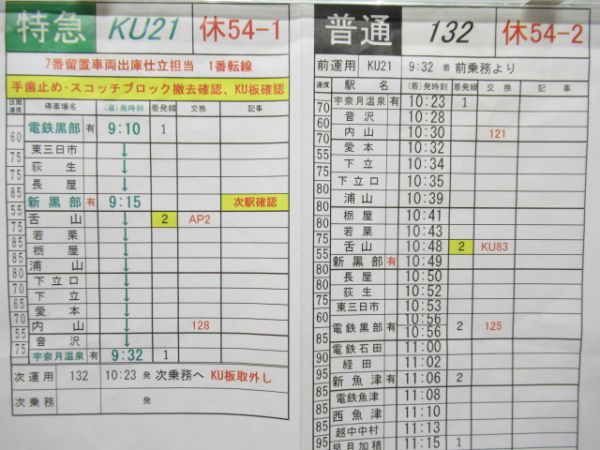 特急 KU21 休54-1
7番留置車両出庫仕立担当 1番転線
手歯止め・スコッチブロック撤去確認、KU板確認
区間速度 停車場名 (着)発時刻 着発線 交換 記事
60 電鉄黒部 有 9:10 1
75 東三日市 ↓
75 荻生 ↓
85 長屋 ↓
85 新黒部 有 9:15 次駅確認
55 舌山 ↓ 2 AP2
75 若栗 ↓
85 栃屋 ↓
85 浦山 ↓
80 下立口 ↓
70 下立 ↓
65 愛本 ↓
70 内山 ↓ 128
75 音沢 ↓
75 宇奈月温泉 有 9:32 1
次運用 132 10:23 発 次乗務へ KU板取外し
次乗務 発
普通 132 休54-2
前運用 KU21 9:32 着 前乗務より
速度 駅名 (着)発時刻 着発線 交換 記事
70 宇奈月温泉 有 10:23 1
音沢 10:28
70 内山 10:30 121
愛本 10:32
55 下立 10:34
下立口 10:35
80 浦山 10:39
80 栃屋 10:41
75 若栗 10:43
55 舌山 10:48 2 KU83
80 新黒部 有 10:49
80 長屋 10:50
荻生 10:52
東三日市 10:53
85 電鉄黒部 有 10:56 10:56 2 125
電鉄石田 11:00
90 経田 11:02
95 新魚津 有 11:06 2
85 電鉄魚津 11:08
85 西魚津 11:10
85 越中中村 11:13
95 早月加積 11:15 1